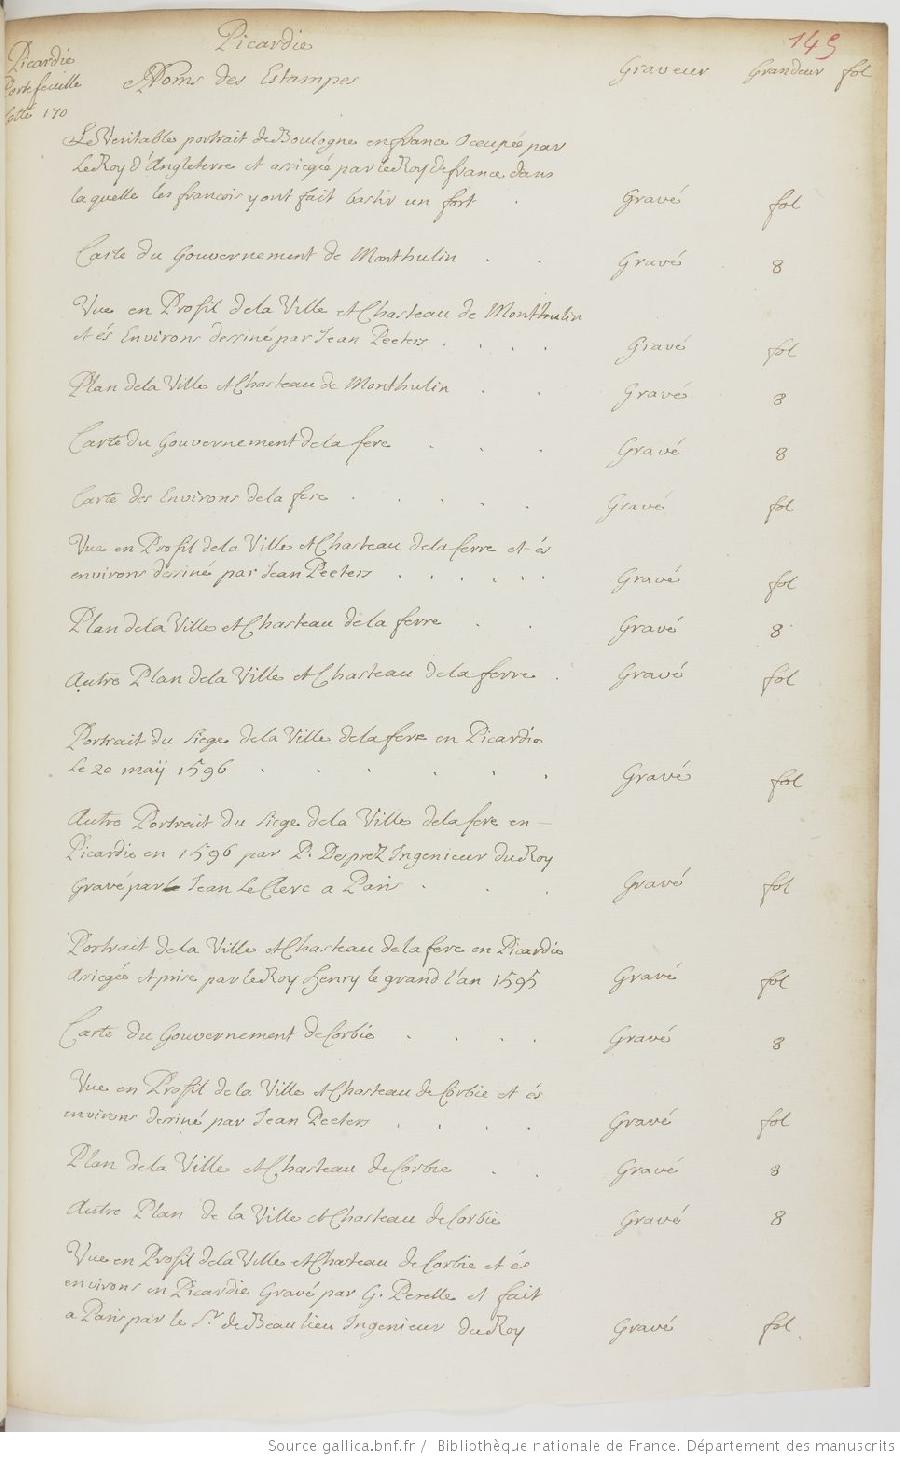 Picardie 145
Picardie
Portefeuille
cotté 170
Noms des Estampes Graveur Grandeur fol
Le Veritable portrait de Boulogne en france Occupée par
Le Roy d'Angleterre et assiegée par le Roy de france dans
laquelle les francois y ont fait bastir un fort . Gravé fol
Carte du Gouvernement de Monthulin . . Gravé 8
Vue en Profil de la Ville et Chasteau de Monthulin
et és Environs dessiné par Jean Peeters . . . . Gravé fol
Plan de la Ville et Chasteau de Monthulin . . Gravé 8
Carte du Gouvernement de la fere . . . Gravé 8
Carte des Environs de la fere . . . . . Gravé fol
Vue en Profil de la Ville et Chasteau de la ferre et és
environs dessiné par Jean Peeters . . . . . . Gravé fol
Plan de la Ville et Chasteau de la ferre . . Gravé 8
Autre Plan de la Ville et Chasteau de la ferre . Gravé fol
Portrait du Siege de la Ville de la fere en Picardie
le 20 maÿ 1596 . . . . . Gravé fol
Autre Portrait du Siege de la Ville de la fere en —
Picardie en 1596 par P. Desprez Ingenieur du Roy
Gravé par Jean Le Clerc a Paris . . . Gravé fol
Portrait de la Ville et Chasteau de la fere en Picardie
Asiegée et prise par le Roy Henry le grand l'an 1595 Gravé fol
Carte du Gouvernement de Corbie . . . . Gravé 8
Vue en Profil de la Ville et Chasteau de Corbie et és
environs dessiné par Jean Peeters . . . . Gravé fol
Plan de la Ville et Chasteau de Corbie . . Gravé 8
Autre Plan de la Ville et Chasteau de Corbie Gravé 8
Vue en Profil de la Ville et Chasteau de Corbie et és
environs en Picardie Gravé par G. Perelle et fait
a Paris par le Sr. de Beaulieu Ingenieur du Roy Gravé fol
Source gallica.bnf.fr / Bibliothèque nationale de France. Département des manuscrits